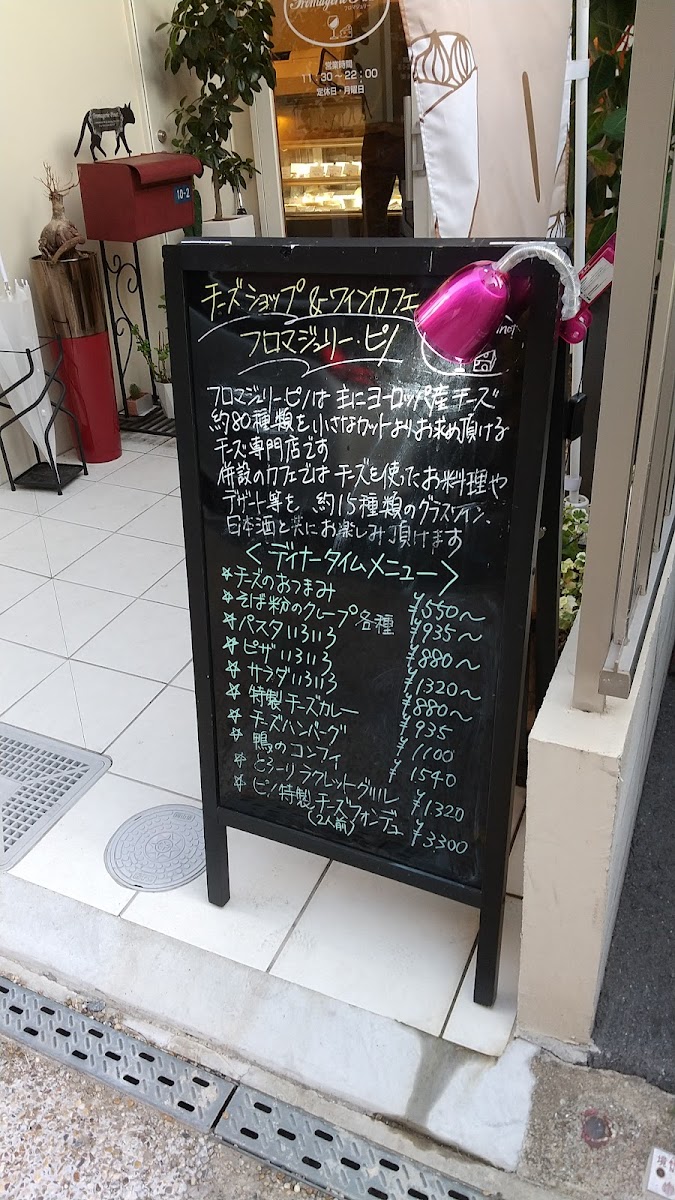 Fromagerie
フロマジュリー
営業時間
11:30～22:00
定休日・月曜日
10-2
チーズショップ&ワインカフェ
フロマジュリー・ピノ
フロマジュリーピノは 主にヨーロッパ産チーズ
約80種類を小さなカットよりお求め頂ける
チーズ専門店です
併設のカフェでは チーズを使ったお料理や
デザート等を、約15種類のグラスワイン、
日本酒と共にお楽しみ頂けます
＜ディナータイムメニュー＞
☆チーズのおつまみ ¥550～
☆そば粉のクレープ各種 ¥935～
☆パスタいろいろ ¥880～
☆ピザいろいろ ¥1320～
☆サラダいろいろ ¥880～
☆特製チーズカレー ¥935
☆チーズハンバーグ ¥1100
☆鴨のコンフィ ¥1540
☆とろーりラクレットグリル ¥1320
☆ピノ特製チーズフォンデュ ¥3300
(2人前)